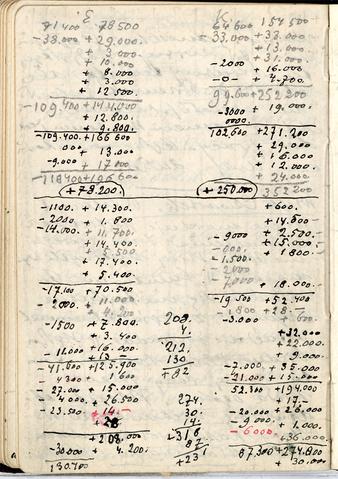 E
71400 78500
-38.000 + 29.000
+ 3.000
+ 10.000
+ 8.000
+ 3.000
+ 12.500
-109.400 + 144.000
+ 12.800.
+ 9.800.
-109.400. + 166.600
000 + 13.000
-9.000 + 17.000
-118400 +196600
+78.200.
-1100. + 14.300.
-2000 + 1.800
-14.000. + 11.700.
+ 14.400.
+ 5.500
+ 17.400.
+ 5.400
-17.100 + 70.500
-2000. + 11.000
+ 4.200
-1500 + 7.800.
+ 3.400
-11.000 + 16.000
-41.600 + 125.900
-4300 + 1600
-27.000 + 15.000
-4.000 + 26.500
-23.500 + 14
28
+ 208.000
-30.000 + 4.200.
130.400
208.
4.
212.
130
+82
274.
30.
14.
+318
87
+231
K
64600 154500
-33.000 + 38.000
+ 13.000
+ 31.000
-2000 + 16.000
-0- + 4.700.
99.600 +252.200
-3000 + 19.000
0000.
102600 +271.200
+ 29.000
+ 16.000
+ 12.000
+ 24.000
352 200
+ 250.000
+ 600.
+ 14.500
-9000 + 2.500.
-000. + 15.000
-1.500. + 1800
-2000
-7.000
+ 18.000
-19.500 + 52.400
-1800 + 28
-3.000 + 600.
+32.000
+22.000.
+ 9.000
-7.000 + 35.000
-21.000 + 15.000
52.300 +194.000
+ 17
-20.000 + 26.000
-9.000 + 1.000
-6000 +36.000
87.300 +274.800
+ 30.000